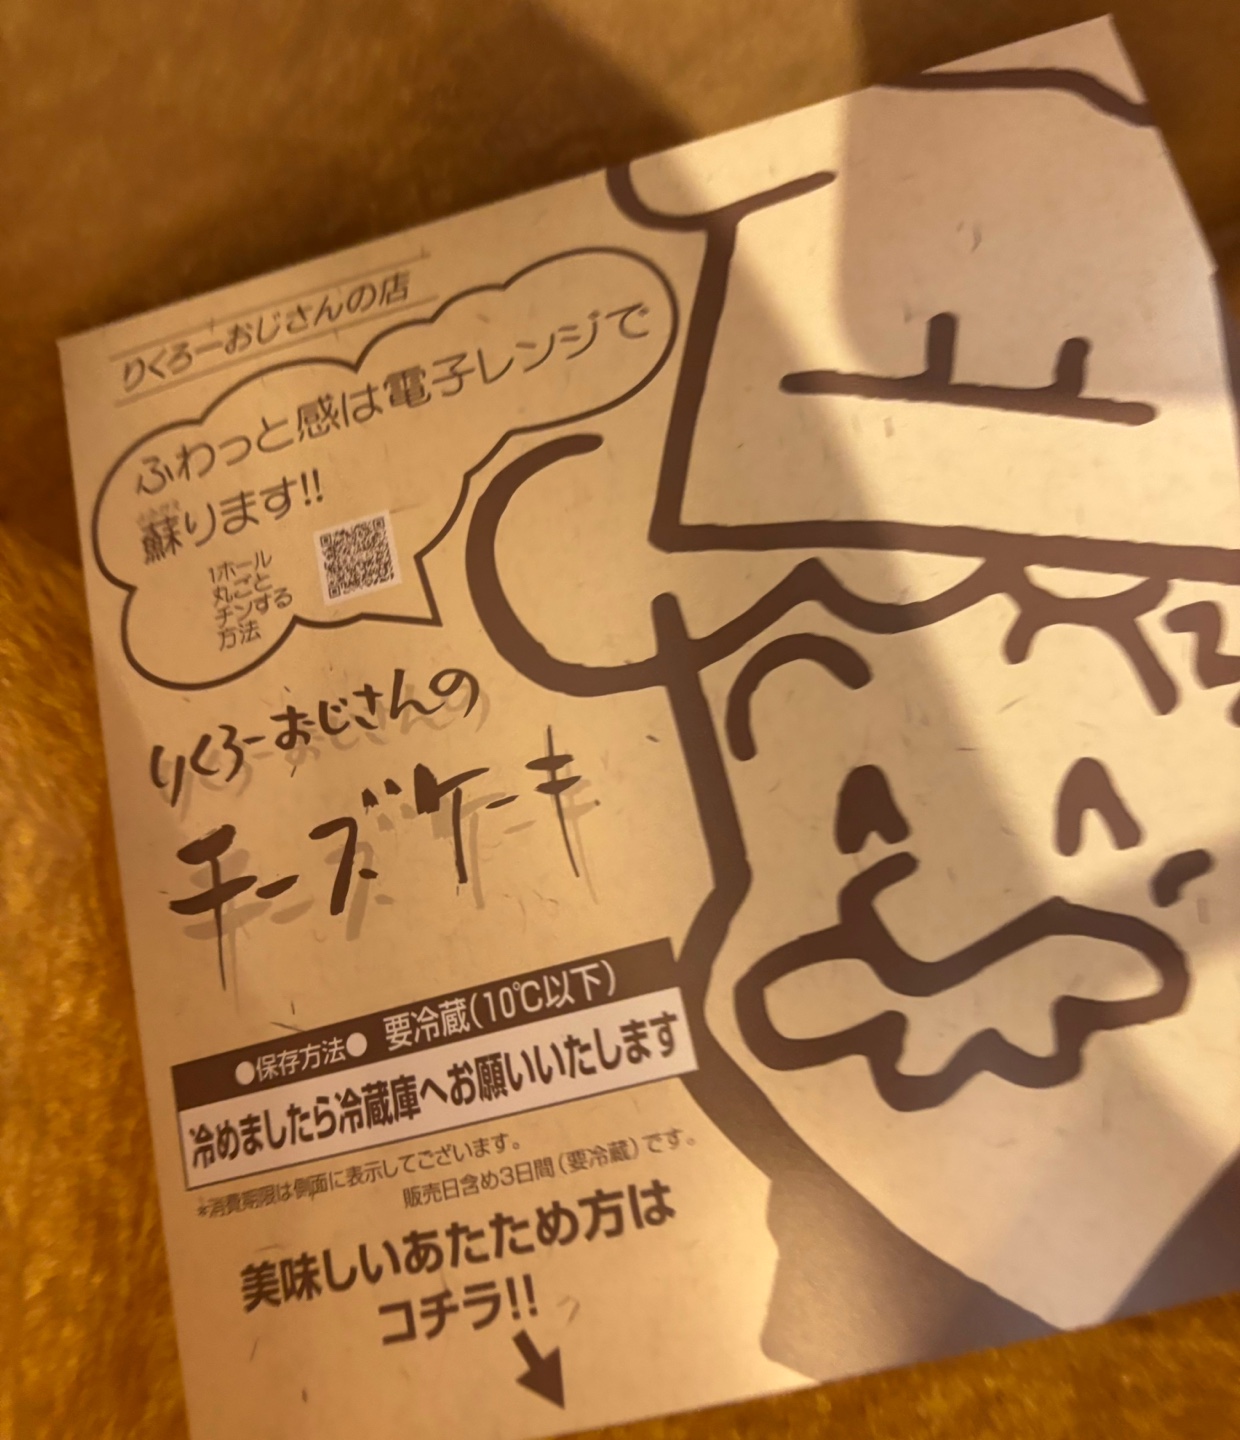 りくろーおじさんの店
ふわっと感は電子レンジで
蘇ります!!
1ホール
丸ごと
チンする
方法
りくろーおじさんの
チーズケーキ
●保存方法● 要冷蔵(10℃以下)
冷めましたら冷蔵庫へお願いいたします
※消費期限は側面に表示してございます。
販売日含め3日間(要冷蔵)です。
美味しいあたため方は
コチラ!!